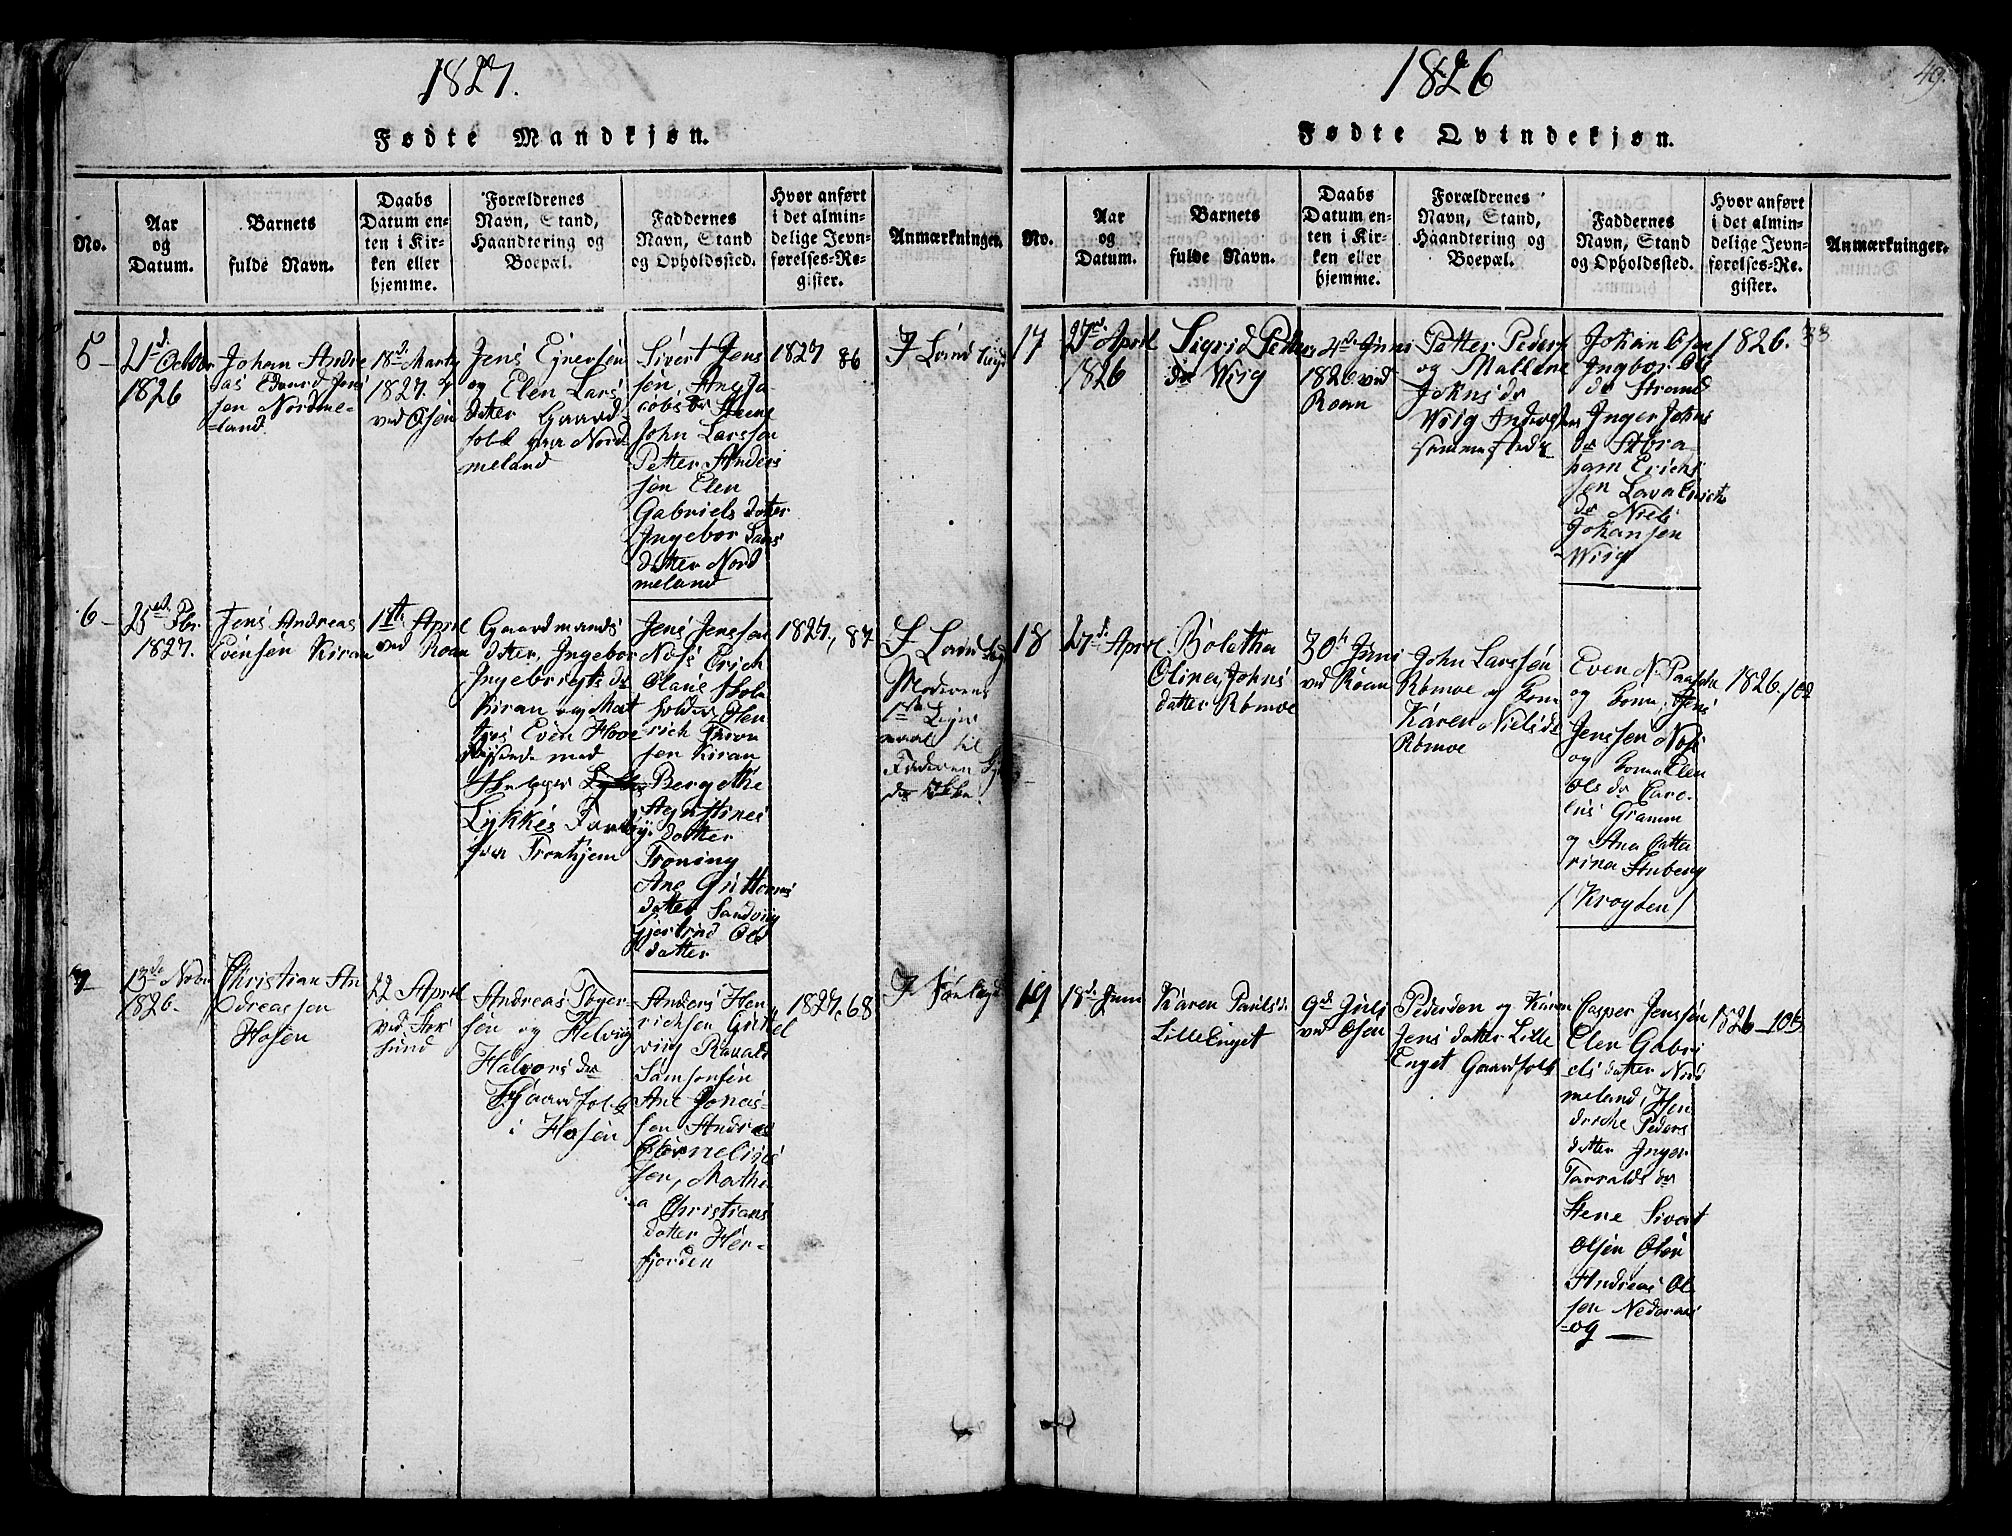 1827.
Fødte Mandkjøn.
No.
Aar
og
Datum.
Barnets
fulde Navn.
Daabs
Datum en-
ten i Kir-
ken eller
hjemme.
Forældrenes
Navn, Stand,
Haandtering og
Boepæl.
Faddernes
Navn, Stand
og Opholdssted.
Hvor anført
i det almin-
delige Jevn-
førelses-Re-
gister.
Anmærkninger.
5
21d October
1826
Johan Andre
as Edvard Jens
sen Nordme-
land
18d Marty
1827.
ved Osen
Jens Ejnersen
og Elen Lars
datter Gaard
folk paa Nord
meland
Sivert Jens
sen, Ane Ja
cobs dr Steens
John Larssen
Petter Anders
sen Elen
Gabriels datter
Ingebor Lars
datter Nord
meland
1827 86
6
25de Fbr.
1827.
Jens Andreas
Evensen Kiran
1ste April
ved Roan
Gaardmands
datter, Ingebor
Ingebrigts dr
Kiran og Mat
tros Even Hove
Rejsende med
Skipper
Lykkes Fartøy
fra Tronhjem
Jens Jenssen
Noss Erich
Olaus Skole
holder Hen
rich
sen Kiran
Bergethe
Agustines
datter
Troning
Ane Guttorms
datter Sandvig
Gjertrud Ols
datter
1827, 87
Moderens
1ste Lejer
maal til
Faderen
ikke.
7
13de Novbr
1826.
Christian An
dreassen
Hosen
22 April
ved Stok
sund
Andreas Tøger
sen og Helvig
Halvors dr
Gaardfolk
i Hosen
Anders Hen
richsen
ving Ravald
Samsonsen
Ane Jonas-
sen Andreas
Cornelius
sen, Mathe
a Christians
datter Her-
fjorden
1827, 68
1826
49.
Fødte Qvindekjøn.
No.
Aar
og
Datum.
Barnets
fulde Navn.
Daabs
Datum en-
ten i Kir-
ken eller
hjemme.
Forældrenes
Navn, Stand,
Haandtering og
Boepæl.
Faddernes
Navn, Stand
og Opholdssted.
Hvor anført
i det almin-
delige Jevn-
førelses-Re-
gister.
Anmærkninger.
17
27de April
1826
Sigrid Petters
dr Wiig
4de Juni
1826 ved
Roan
Petter Peders
og Mallene
Johns dr
Wiig Inderster
samme sted
Johan Olsen
Ingbor Ols
dr Strand
Inger Johns
dr Abra
ham Erichs
sen Lava Erichs
dr Niels
Johansen
Wiig
1826. 33
18
27d April
Bolatha
Olina Johns
datter Rømoe
30te Juni
ved Roan
John Larssen
Rømoe og Kone
Karen Niels dr
Rømoe
Even N. Paasche
og Kone, Jens
Jenssen Noss
og Konen Elen
Ols dr Core-
lius Gramm
og Ana Catte
rina Stuberg
/ Krogøen /
1826. 102
19
18d Juni
Karen Pauls dr
Lille Enget
9d Juli
ved Osen
Peder og Karen
Jens datter Lille
Enget Gaardfolk
Casper Jenssen
Elen Gabri
els datter Nord
meland, Hen
driche Peders
datter Inger
Tarralds dr
Stene Sivert
Olsen
Andreas Ol
sen
og
1826 105